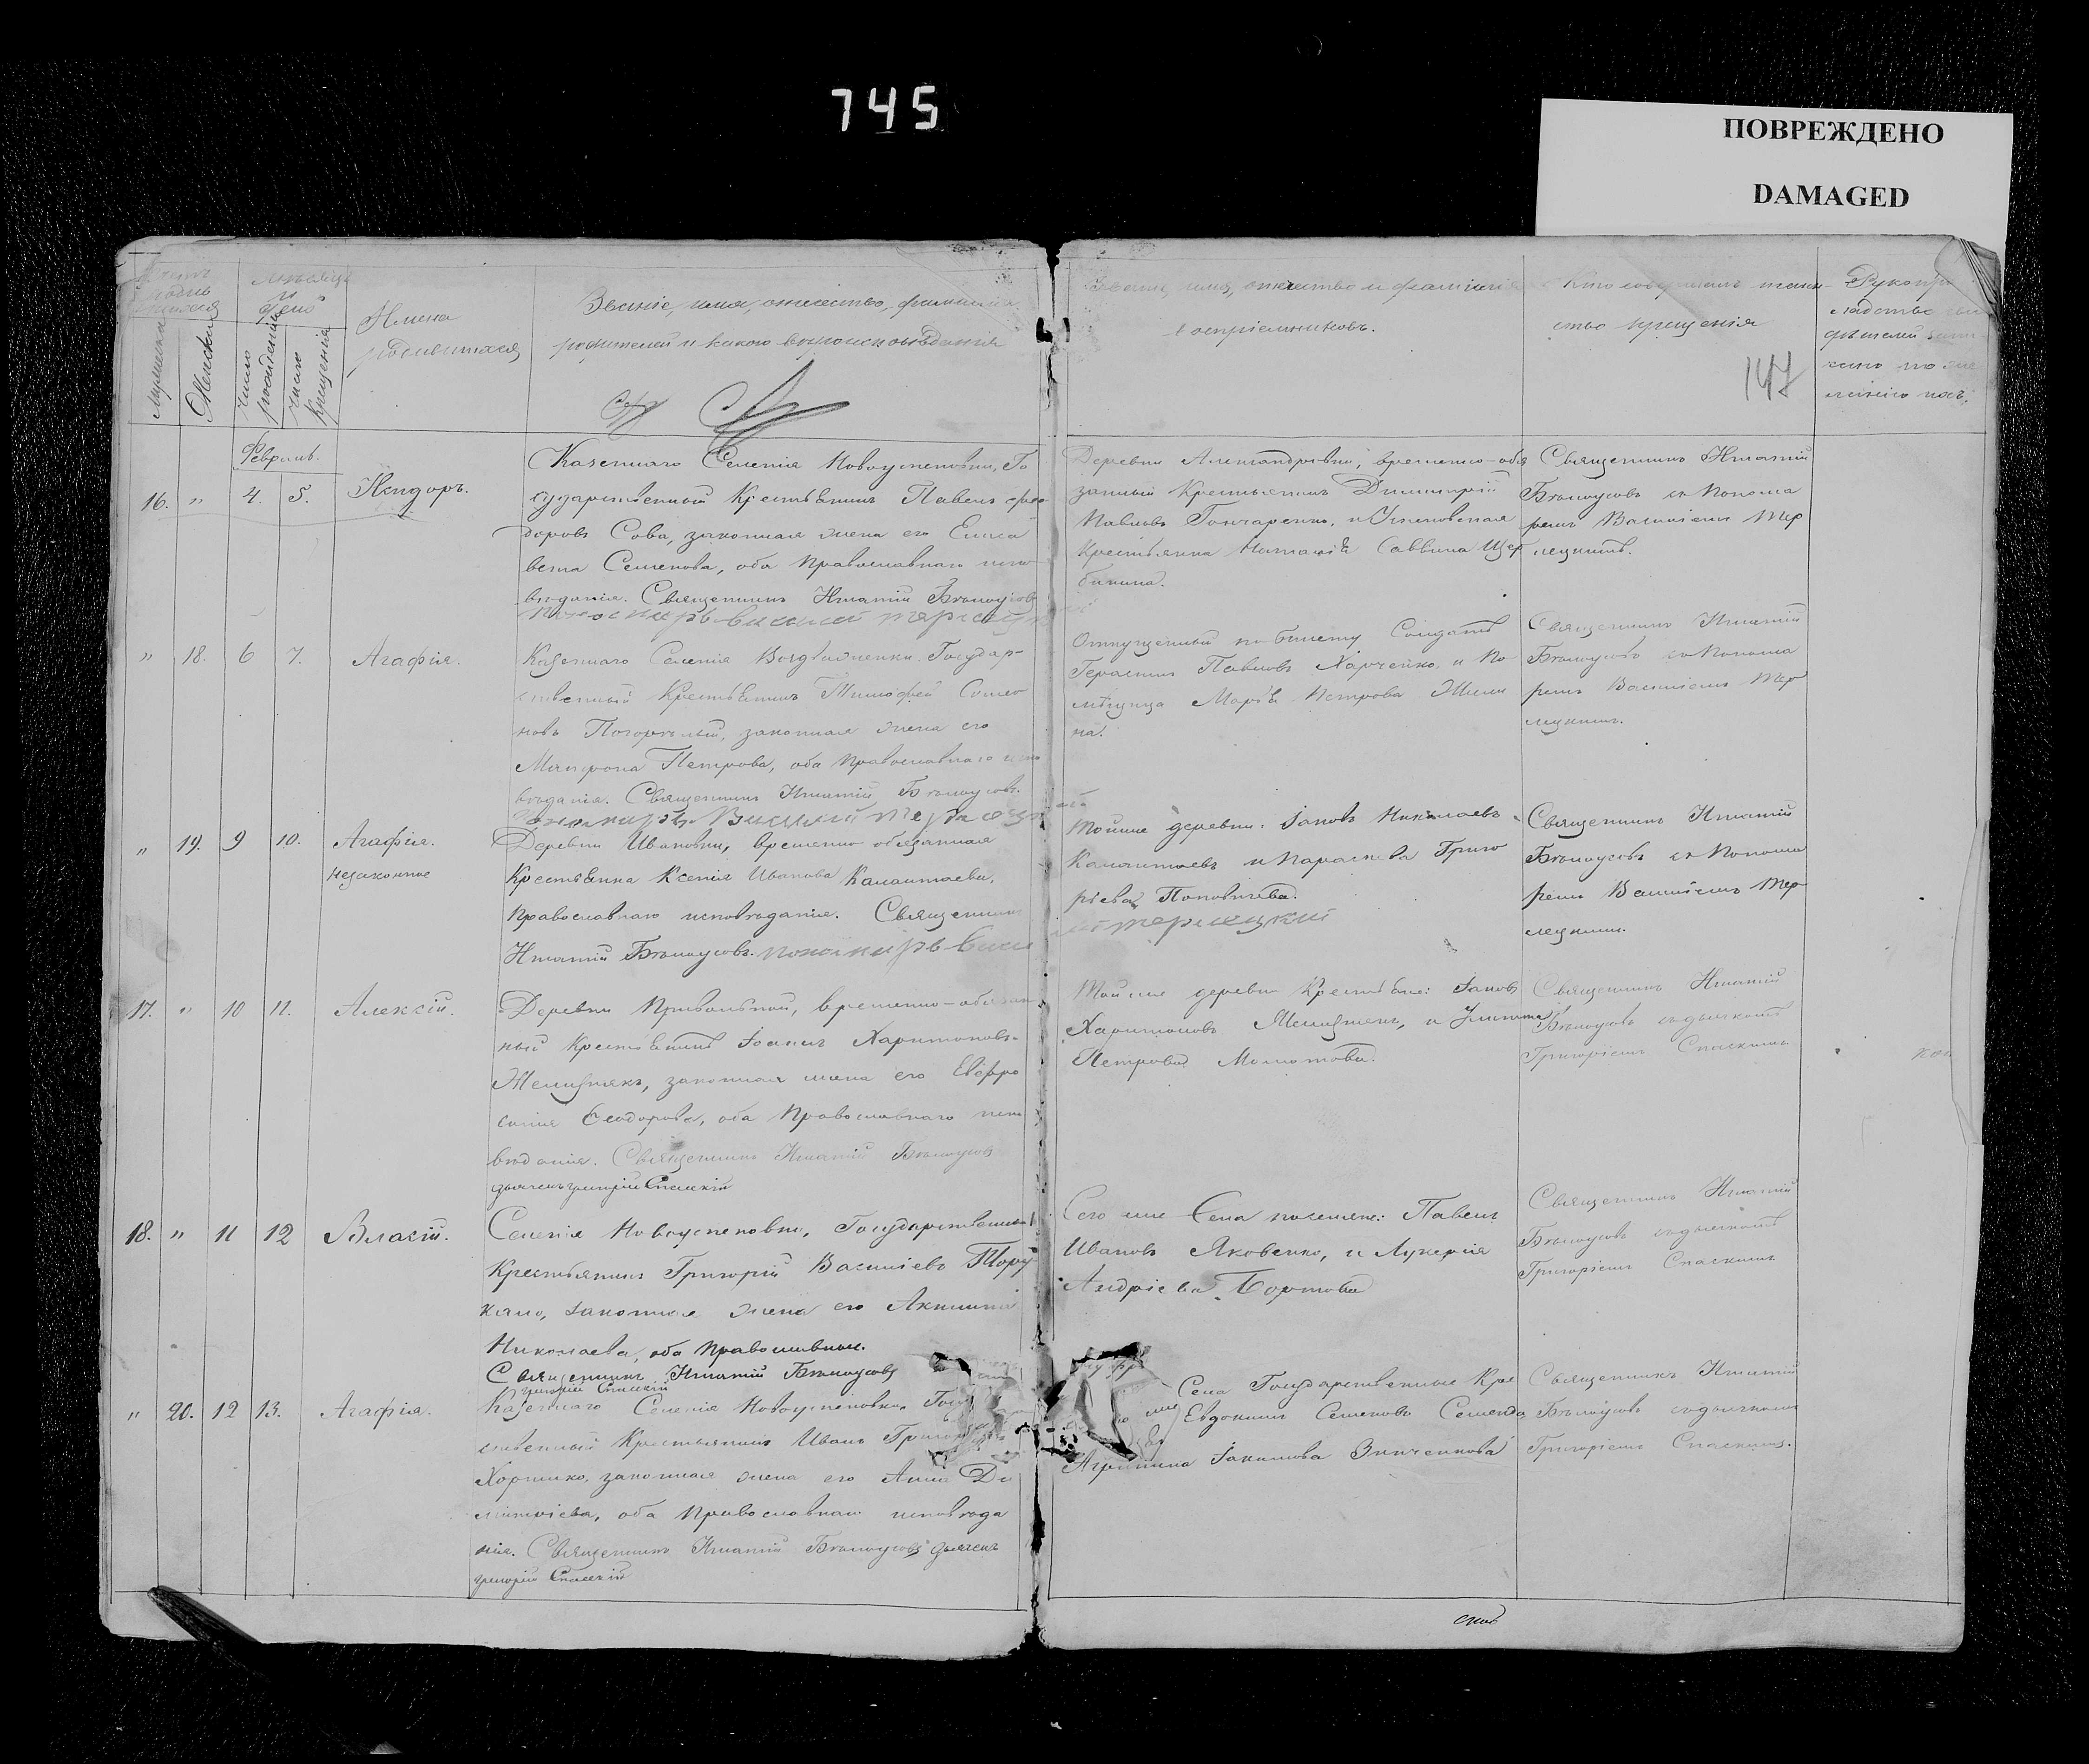 745
ПОВРЕЖДЕНО
DAMAGED
Мужеска
Женска
число рожденія
число крещенія
Имена
родившихся
Званіе, имя, отчество, фамилія
родителей и какого вѣроисповѣданія
Званіе, имя, отчество и фамилія
воспріемниковъ.
Кто совершалъ таин-
ство крещенія
147
Рукопри
Февраль.
16. " 4. 5. Исидоръ.
Казеннаго Селенія Новоуспеновки, Го
сударственный Крестьянинъ Павелъ Фео
доровъ Сова, законная жена его Елиса
вета Семенова, оба Православнаго испо
вѣданія. Священникъ Игнатій Бѣлоусовъ
Деревни Александровки, временно-обя
занный Крестьянинъ Димитрій
Павловъ Гончаренко, и Успеновская
Крестьянка Наталія Саввина Щер
бинина.
Священникъ Игнатій
Бѣлоусовъ съ Понома
ремъ Василіемъ Тер
лецкимъ.
" 18. 6 7. Агафія.
Казеннаго Селенія Воздвиженки Государ-
ственный Крестьянинъ Тимофей Симео
новъ Погорѣлый, законная жена его
Матрона Петрова, оба Православнаго испо
вѣданія. Священникъ Игнатій Бѣлоусовъ.
Отпущенный по билету Солдатъ
Герасимъ Павловъ Харченко, и По
мѣщица Марія Петрова Жили
на.
Священникъ Игнатій
Бѣлоусовъ съ Понома
ремъ Василіемъ Тер
лецкимъ.
" 19. 9 10. Агафія.
незаконное
Деревни Ивановки, временно обязанная
Крестьянка Ксенія Иванова Калантаева,
Православнаго исповѣданія. Священникъ
Игнатій Бѣлоусовъ. пономарь Васи
лій терлецкій
Тойже деревни: Іаковъ Николаевъ
Калантаевъ и Параскева Григо
рьева Поповичева.
Священникъ Игнатій
Бѣлоусовъ съ Понома
ремъ Василіемъ Тер
лецкимъ.
17. " 10 11. Алексій.
Деревни Привольной, временно-обязан
ный Крестьянинъ Іоаннъ Харитоновъ
Желизнякъ, законная жена его Евфро
синія Феодорова, оба Православнаго испо
вѣданія. Священникъ Игнатій Бѣлоусовъ
дьячекъ григорій Спасскій
Той же деревни Крестьяне: Іаковъ
Харитоновъ Желизнякъ, и Улита
Петрова
Священникъ Игнатій
Бѣлоусовъ съ дьячкомъ
Григоріемъ Спаскимъ
18. " 11 12 Власій.
Селенія Новоуспеновки, Государственный
Крестьянинъ Григорій Василіевъ Тору
кало, законная жена его Акилина
Николаева, оба Православные.
Священникъ Игнатій Бѣлоусовъ
григорій Спасскій
Сего же Села поселяне: Павелъ
Ивановъ Яковенко, и Лукерія
Андріева Бортова
Священникъ Игнатій
Бѣлоусовъ съ дьячкомъ
Григоріемъ Спаскимъ
" 20. 12 13. Агафія.
Казеннаго Селенія Новоуспеновки, Госу
ственный Крестьянинъ Иванъ
законная жена его Анна Ди
митріева, оба Православнаго исповѣда
нія. Священникъ Игнатій Бѣлоусовъ дьячекъ
григорій Спасскій
Села Государственные Кре
Евдокимъ Семеновъ
Агрипина Іакимова Зинченкова
Священникъ Игнатій
Бѣлоусовъ съ дьячкомъ
Григоріемъ Спаскимъ.